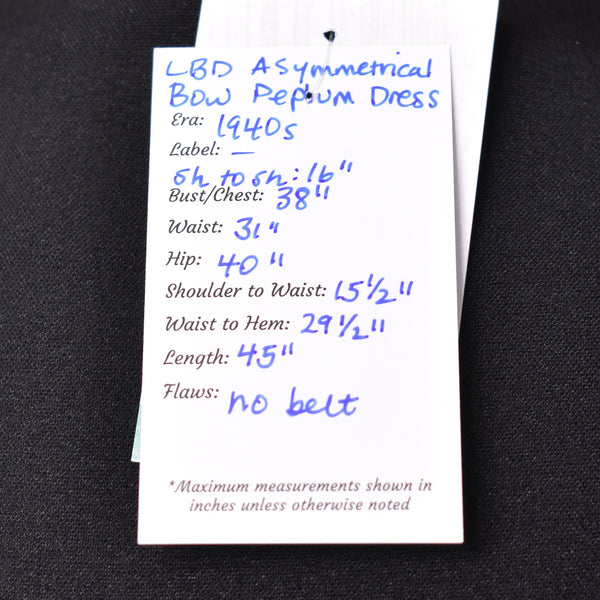 LBD Asymmetrical
Bow Peplum Dress
Era: 1940s
Label: —
sh to sh: 16"
Bust/Chest: 38"
Waist: 31"
Hip: 40"
Shoulder to Waist: 15 1/2"
Waist to Hem: 29 1/2"
Length: 45"
Flaws: no belt
*Maximum measurements shown in
inches unless otherwise noted